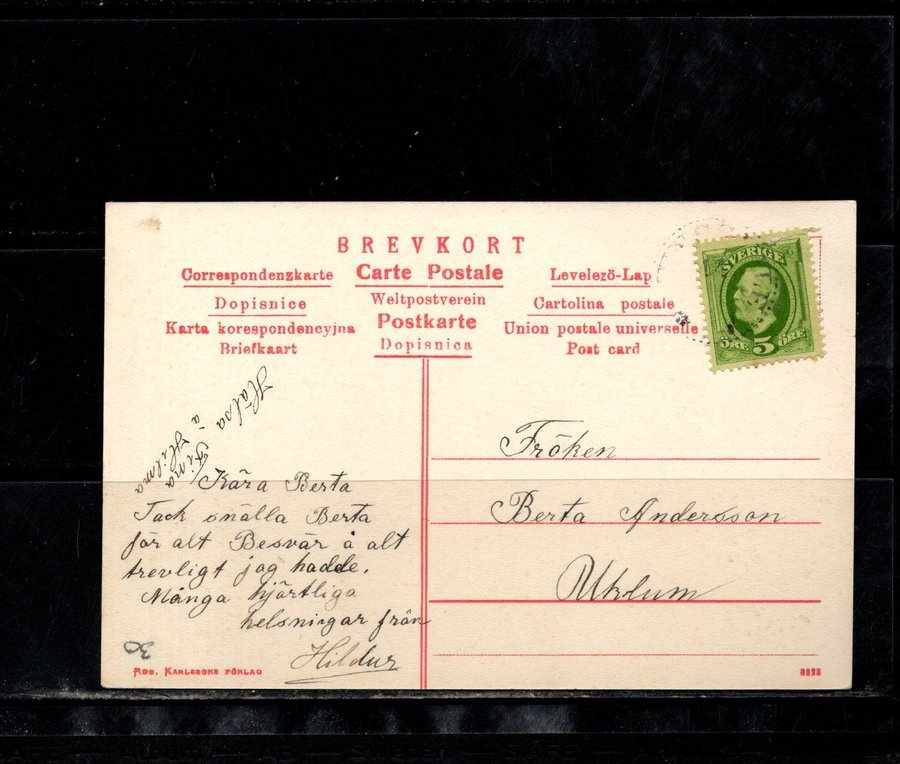 BREVKORT
Correspondenzkarte
Carte Postale
Levelező-Lap
Dopisnice
Weltpostverein
Cartolina postale
Karta korespondencyjna
Postkarte
Union postale universelle
Briefkaart
Dopisnica
Post card
SVERIGE
ÖRE 5 ÖRE
Hälsa
å
Tima
Hilma
Kära Berta
Tack snälla Berta
för alt Besvär å alt
trevligt jag hadde.
Många hjärtliga
helsningar från
Hildur
Fröken
Berta Andersson
Uklum
30
ROB. KARLSSONS FÖRLAG